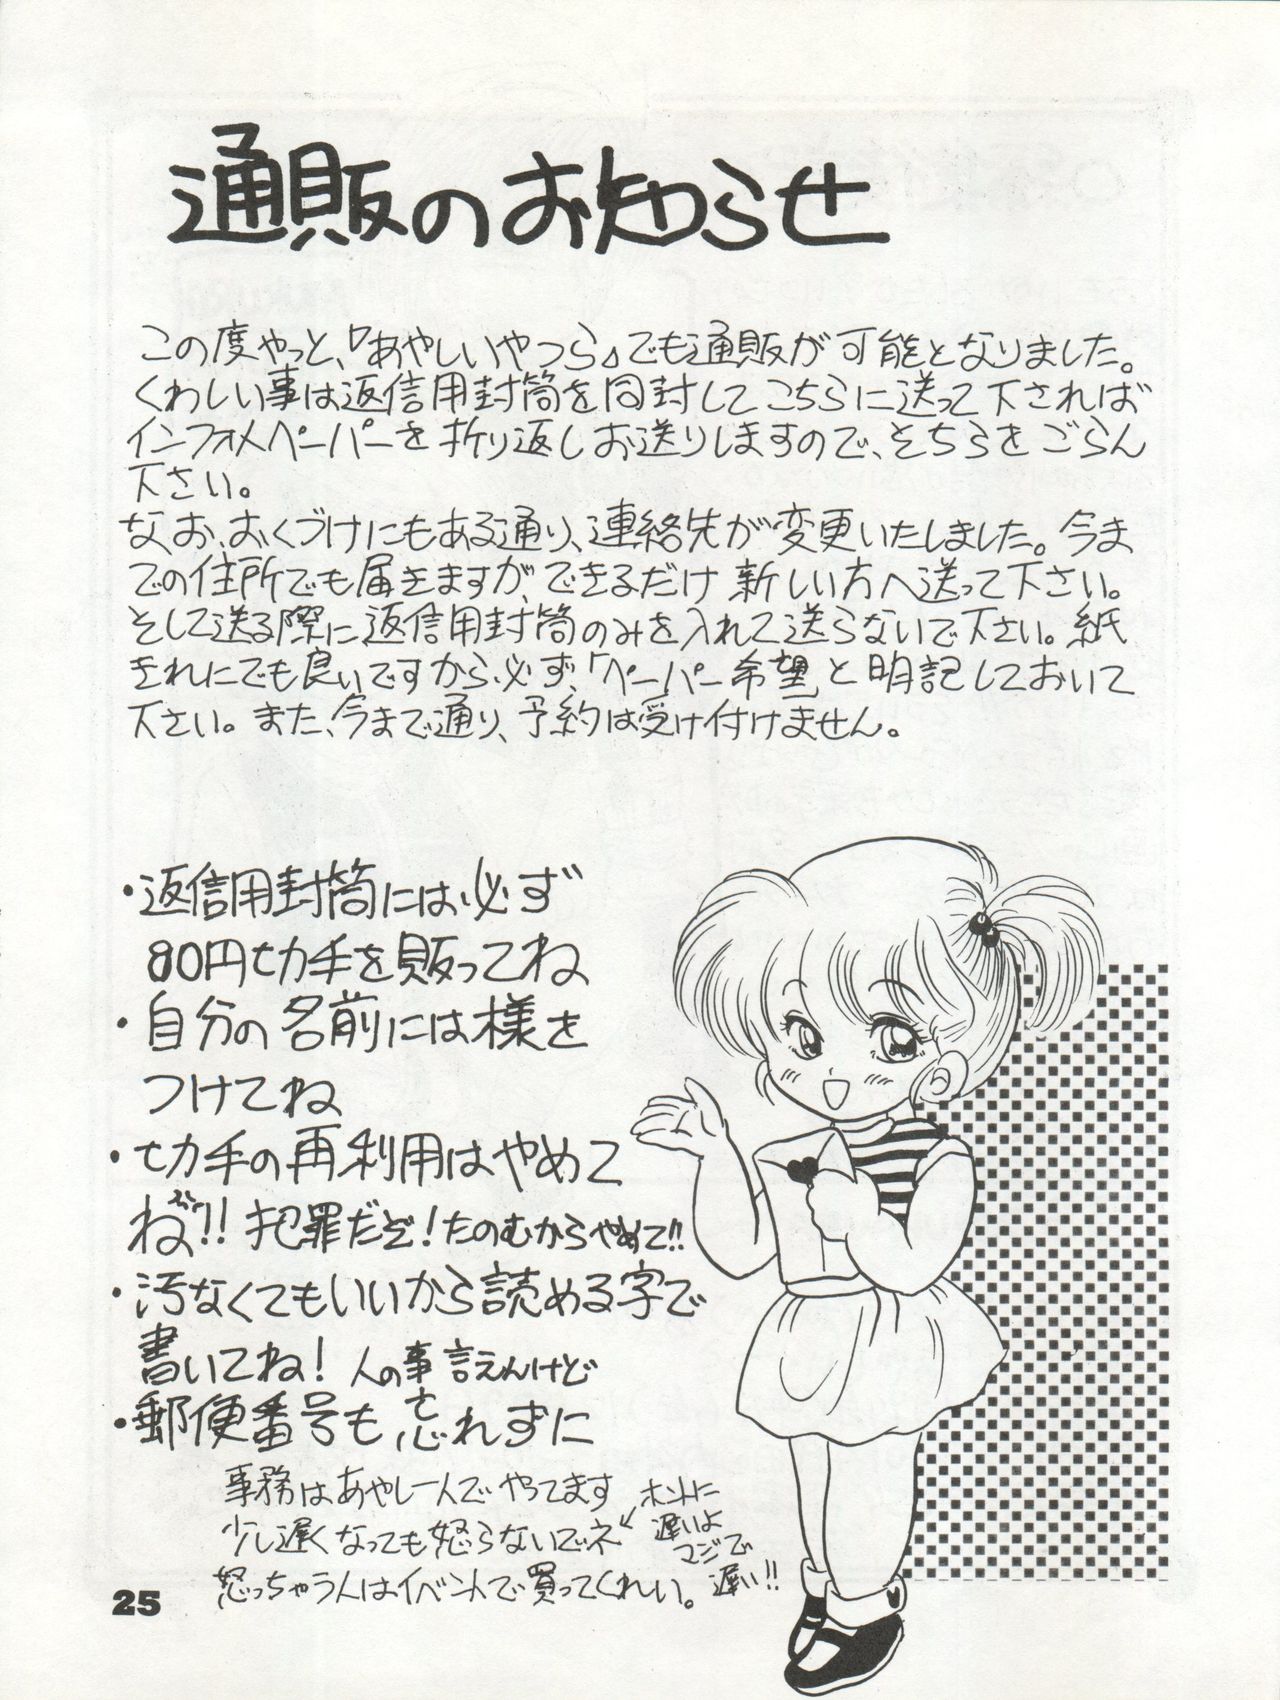 通販のお知らせ
この度やっと、『あやしいやつら』でも通販が可能となりました。
くわしい事は返信用封筒を同封してこちらに送って下されば
インフォメペーパーを折り返しお送りしますので、そちらをごらん
下さい。
なお、おくづけにもある通り、連絡先が変更いたしました。今ま
での住所でも届きますが、できるだけ新しい方へ送って下さい。
そして送る際に返信用封筒のみを入れて送らないで下さい。紙
きれにでも良いですから必ず、「ペーパー希望」と明記しておいて
下さい。また、今まで通り、予約は受け付けません。
・返信用封筒には必ず
80円切手を貼ってね
・自分の名前には様を
つけてね
・切手の再利用はやめて
ね!! 犯罪だぞ!たのむからやめて!!
・汚なくてもいいから読める字で
書いてね! 人の事言えんけど
・郵便番号も忘れずに
事務はあやし一人でやってます
少し遅くなっても怒らないでネ
怒っちゃう人はイベントで買ってくれい。
ホントに
遅いよ
マジで
遅い!!
25